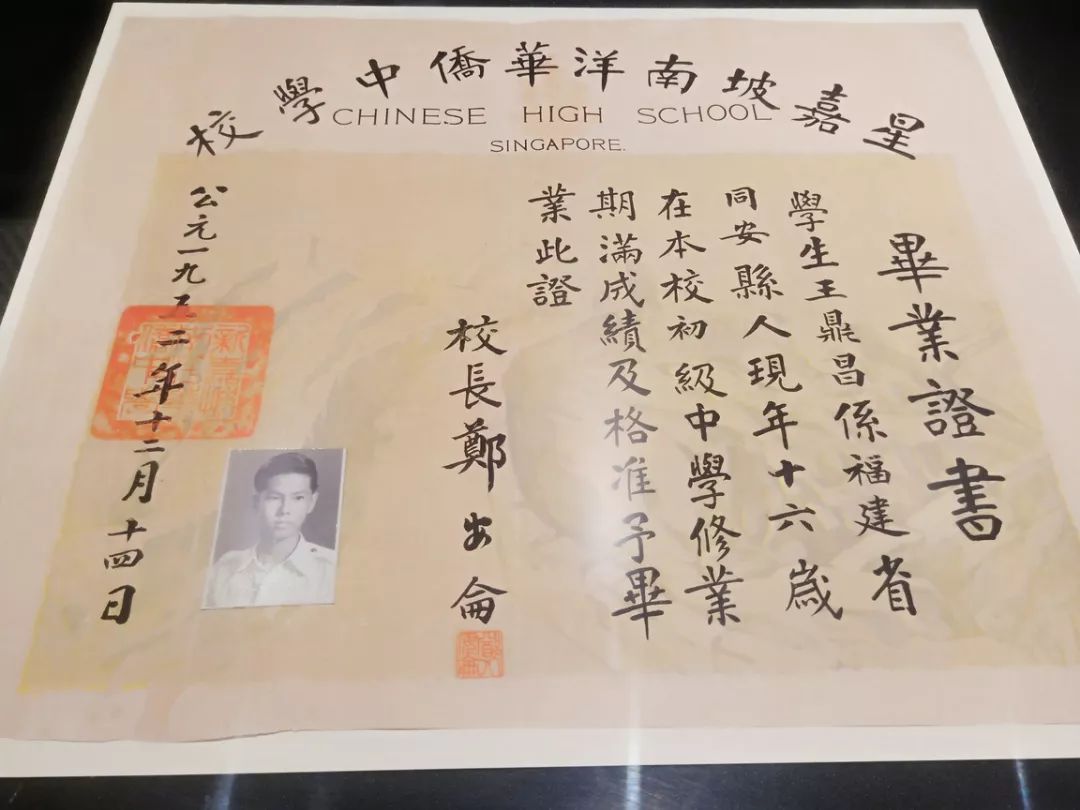 星嘉坡南洋華僑中學校
CHINESE HIGH SCHOOL
SINGAPORE.
畢業證書
學生王鼎昌係福建省
同安縣人現年十六歲
在本校初級中學修業
期滿成績及格准予畢
業此證
校長鄭安侖
公元一九五二年十二月十四日